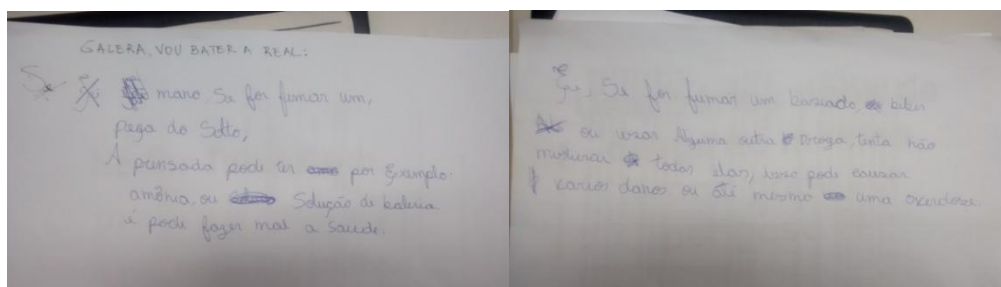 GALERA, VOU BATER A REAL:
Se Ei mano Se for fumar um,
pega do Solto,
A prensada pode ter por Exemplo
amônia, ou Solução de bateria
é pode fazer mal a Saude.
Ei, Se for fumar um baseado, beber
ou usar Alguma outra Droga, tenta não
misturar todas elas, isso pode causar
varios danos ou até mesmo uma overdose.